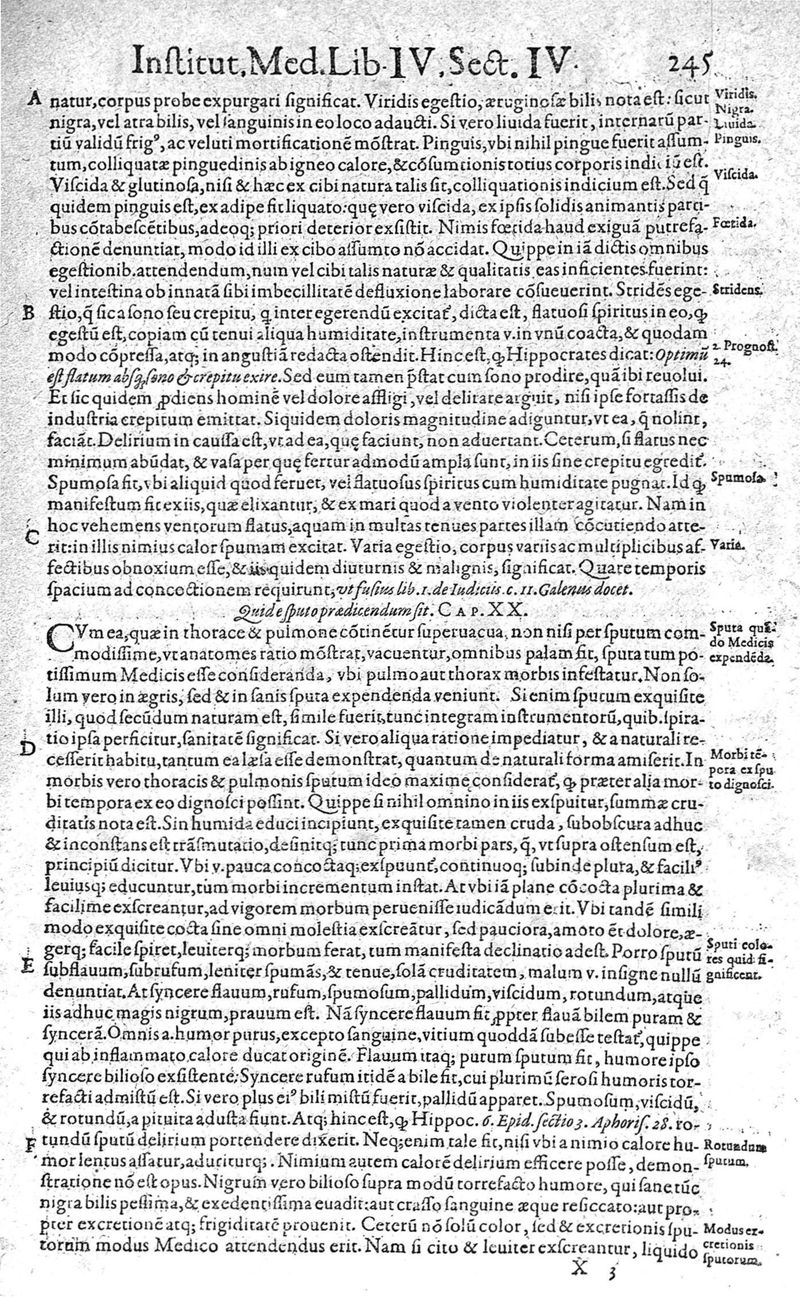 Inſtitut. Med. Lib. IV. Sect. IV. 245
A natur, corpus probe expurgari ſignificat. Viridis egeſtio, æruginoſæ bilis nota eſt: ſicut Viridis.
nigra, vel atra bilis, vel ſanguinis in eo loco adaucti. Si vero liuida fuerit, internarũ par- Nigra. Liuida.
tiũ validũ frigꝰ, ac veluti mortificationẽ mõſtrat. Pinguis, vbi nihil pingue fuerit aſſum- Pinguis.
tum, colliquatæ pinguedinis ab igneo calore, & cõſumtionis totius corporis indiciũ eſt.
Viſcida & glutinoſa, niſi & hæc ex cibi natura talis ſit, colliquationis indicium eſt. Sed q̃ Viſcida.
quidem pinguis eſt, ex adipe fit liquato: quę vero viſcida, ex ipſis ſolidis animantis parti-
bus cõtabeſcẽtibus, adeoq; priori deterior exſiſtit. Nimis fœtida haud exiguã putrefa- Fœtida.
ctionẽ denuntiat, modo id illi ex cibo aſſumto nõ accidat. Quippe in iã dictis omnibus
egeſtionib. attendendum, num vel cibi talis naturæ & qualitatis eas inficientes fuerint:
vel inteſtina ob innatã ſibi imbecillitatẽ defluxione laborare cõſueuerint. Stridẽs ege- Stridens.
B ſtio, q̃ ſic a ſono ſeu crepitu, q inter egerendũ excitat᷑, dicta eſt, flatuoſi ſpiritus in eo, ꝙ
egeſtũ eſt, copiam cũ tenui aliqua humiditate, inſtrumenta v. in vnũ coacta, & quodam
modo cõpreſſa, atq; in anguſtiã redacta oſtendit. Hinc eſt, ꝙ Hippocrates dicat: Optimũ 2. Prognoſt. 24.
eſt flatum abſq; ſono & crepitu exire. Sed eum tamen p̃ſtat cum ſono prodire, quã ibi reuolui.
Et ſic quidem ꝓdiens hominẽ vel dolore affligi, vel delirare arguit, niſi ipſe fortaſſis de
induſtria crepitum emittat. Siquidem doloris magnitudine adiguntur, vt ea, q̃ nolint,
faciãt. Delirium in cauſſa eſt, vt ad ea, quę faciunt, non aduertant. Ceterum, ſi flatus nec
minimum abũdat, & vaſa per quę fertur admodũ ampla ſunt, in iis ſine crepitu egredit᷑.
Spumoſa fit, vbi aliquid quod feruet, vel flatuoſus ſpiritus cum humiditate pugnat. Id ꝙ Spumoſa.
manifeſtum fit ex iis, quæ elixantur, & ex mari quod a vento violenter agitatur. Nam in
C hoc vehemens ventorum flatus, aquam in multas tenues partes illam cõcutiendo atte-
rit: in illis nimius calor ſpumam excitat. Varia egeſtio, corpus variis ac multiplicibus af- Varia.
fectibus obnoxium eſſe, & iis quidem diuturnis & malignis, ſignificat. Quare temporis
ſpacium ad concoctionem requirunt, vt fuſius lib. 1. de Iudiciis. c. 11. Galenus docet.
Quid e ſputo prædicendum ſit. CAP. XX.
CVm ea, quæ in thorace & pulmone cõtinẽtur ſuperuacua, non niſi per ſputum com- Sputa quã-
modiſſime, vt anatomes ratio mõſtrat, vacuentur, omnibus palam fit, ſputa tum po- do Medicis
tiſſimum Medicis eſſe conſideranda, vbi pulmo aut thorax morbis infeſtatur. Non ſo- expendẽda.
lum vero in ægris, ſed & in ſanis ſputa expendenda veniunt. Si enim ſputum exquiſite
illi, quod ſecũdum naturam eſt, ſimile fuerit, tunc integram inſtrumentorũ, quib. ſpira-
D tio ipſa perficitur, ſanitatẽ ſignificat. Si vero aliqua ratione impediatur, & a naturali re-
ceſſerit habitu, tantum ea læſa eſſe demonſtrat, quantum de naturali forma amiſerit. In Morbi tẽ-
morbis vero thoracis & pulmonis ſputum ideo maxime conſiderat᷑, ꝙ præter alia mor- pora ex ſpu
bi tempora ex eo dignoſci poſſint. Quippe ſi nihil omnino in iis exſpuitur, ſummæ cru- to dignoſci.
ditatis nota eſt. Sin humida educi incipiunt, exquiſite tamen cruda, ſubobſcura adhuc
& inconſtans eſt trãſmutatio, deſinitq; tunc prima morbi pars, q̃, vt ſupra oſtenſum eſt,
principiũ dicitur. Vbi v. pauca concoctaq; exſpuunt᷑, continuoq; ſubinde plura, & faciliꝰ
leuiusq; educuntur, tum morbi incrementum inſtat. At vbi iã plane cõcocta plurima &
facilime exſcreantur, ad vigorem morbum perueniſſe iudicãdum erit. Vbi tandẽ ſimili
modo exquiſite cocta ſine omni moleſtia exſcreãtur, ſed pauciora, amoto ẽt dolore, æ-
gerq; facile ſpiret, leuiterq; morbum ferat, tum manifeſta declinatio adeſt. Porro ſputũ Sputi colo-
E ſubflauum, ſubrufum, leniter ſpumãs, & tenue, ſolã cruditatem, malum v. inſigne nullũ res quid ſi-
denuntiat. At ſyncere flauum, rufum, ſpumoſum, pallidum, viſcidum, rotundum, atque gnificent.
iis adhuc magis nigrum, prauum eſt. Nã ſyncere flauum fit ꝓpter flauã bilem puram &
ſyncerã. Omnis a. humor purus, excepto ſanguine, vitium quoddã ſubeſſe teſtat᷑, quippe
qui ab inflammato calore ducat originẽ. Flauum itaq; purum ſputum fit, humore ipſo
ſyncere bilioſo exſiſtente: Syncere rufum itidẽ a bile fit, cui plurimũ ſeroſi humoris tor-
refacti admiſtũ eſt. Si vero plus eiꝰ bili miſtũ fuerit, pallidũ apparet. Spumoſum, viſcidũ,
& rotundũ, a pituita aduſta fiunt. Atq; hinc eſt, ꝙ Hippoc. 6. Epid. ſectio 3. Aphoriſ. 28. ro-
F tundũ ſputũ delirium portendere dixerit. Neq; enim tale fit, niſi vbi a nimio calore hu- Rotundum
mor lentus aſſatur, aduriturq;. Nimium autem calorẽ delirium efficere poſſe, demon- ſputum.
ſtratione nõ eſt opus. Nigrum vero bilioſo ſupra modũ torrefacto humore, qui ſane tũc
nigra bilis peſſima, & exedentiſſima euadit: aut craſſo ſanguine æque reſiccato: aut pro-
pter excretionẽ atq; frigiditatẽ prouenit. Ceterũ nõ ſolũ color, ſed & excretionis ſpu- Modus ex-
torum modus Medico attendendus erit. Nam ſi cito & leuiter exſcreantur, liquido cretionis ſputorum.
X 3